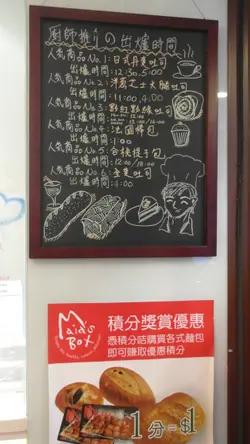 廚師推介の出爐時間
人氣商品No.1:日式丹麥吐司
出爐時間:12:30,5:00
人氣商品No.2:洋葱芝士火腿吐司
出爐時間:11:00,4:00
人氣商品No.3:
出爐時間:
人氣商品No.4:法國棒包
出爐時間:1:00
人氣商品No.5:合桃提子包
出爐時間:12:00/18:00
人氣商品No.6:全麥吐司
出爐時間:4:00
Maid's
Box
積分獎賞優惠
憑積分咭購買各式麵包
即可賺取優惠積分
1分=$1